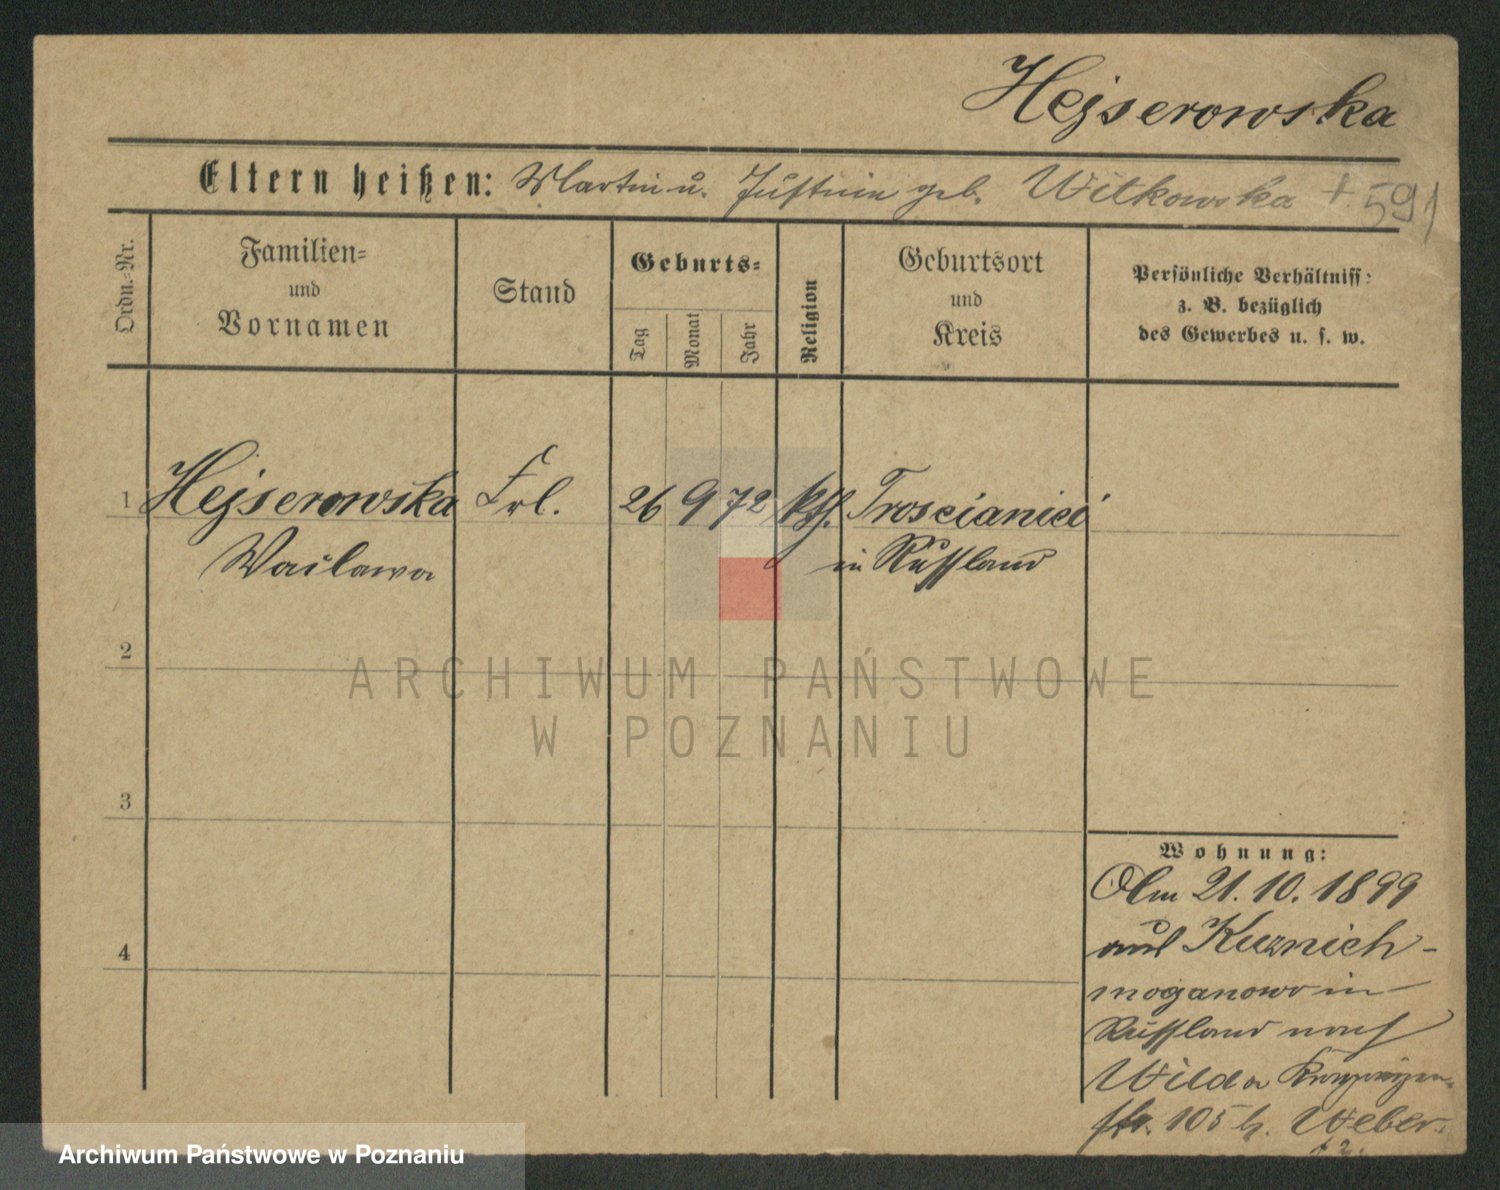 Hejserowska
Eltern heißen: Martin u. Justine geb. Witkowska + 591
Ordn.-Nr.
Familien-
und
Vornamen
Stand
Geburts-
Tag
Monat
Jahr
Religion
Geburtsort
und
Kreis
Persönliche Verhältniss:
z. B. bezüglich
des Gewerbes u. s. w.
1 Hejserowska Frl. 26 9 72 kth. Troscianici
Waclawa in Russland
2
3
4
ARCHIWUM PAŃSTWOWE
W POZNANIU
Wohnung:
Am 21. 10. 1899
aus Kuznich-
moganowo in
Russland nach
Wilda Kronprinzen-
str. 105 b. Weber.
Archiwum Państwowe w Poznaniu